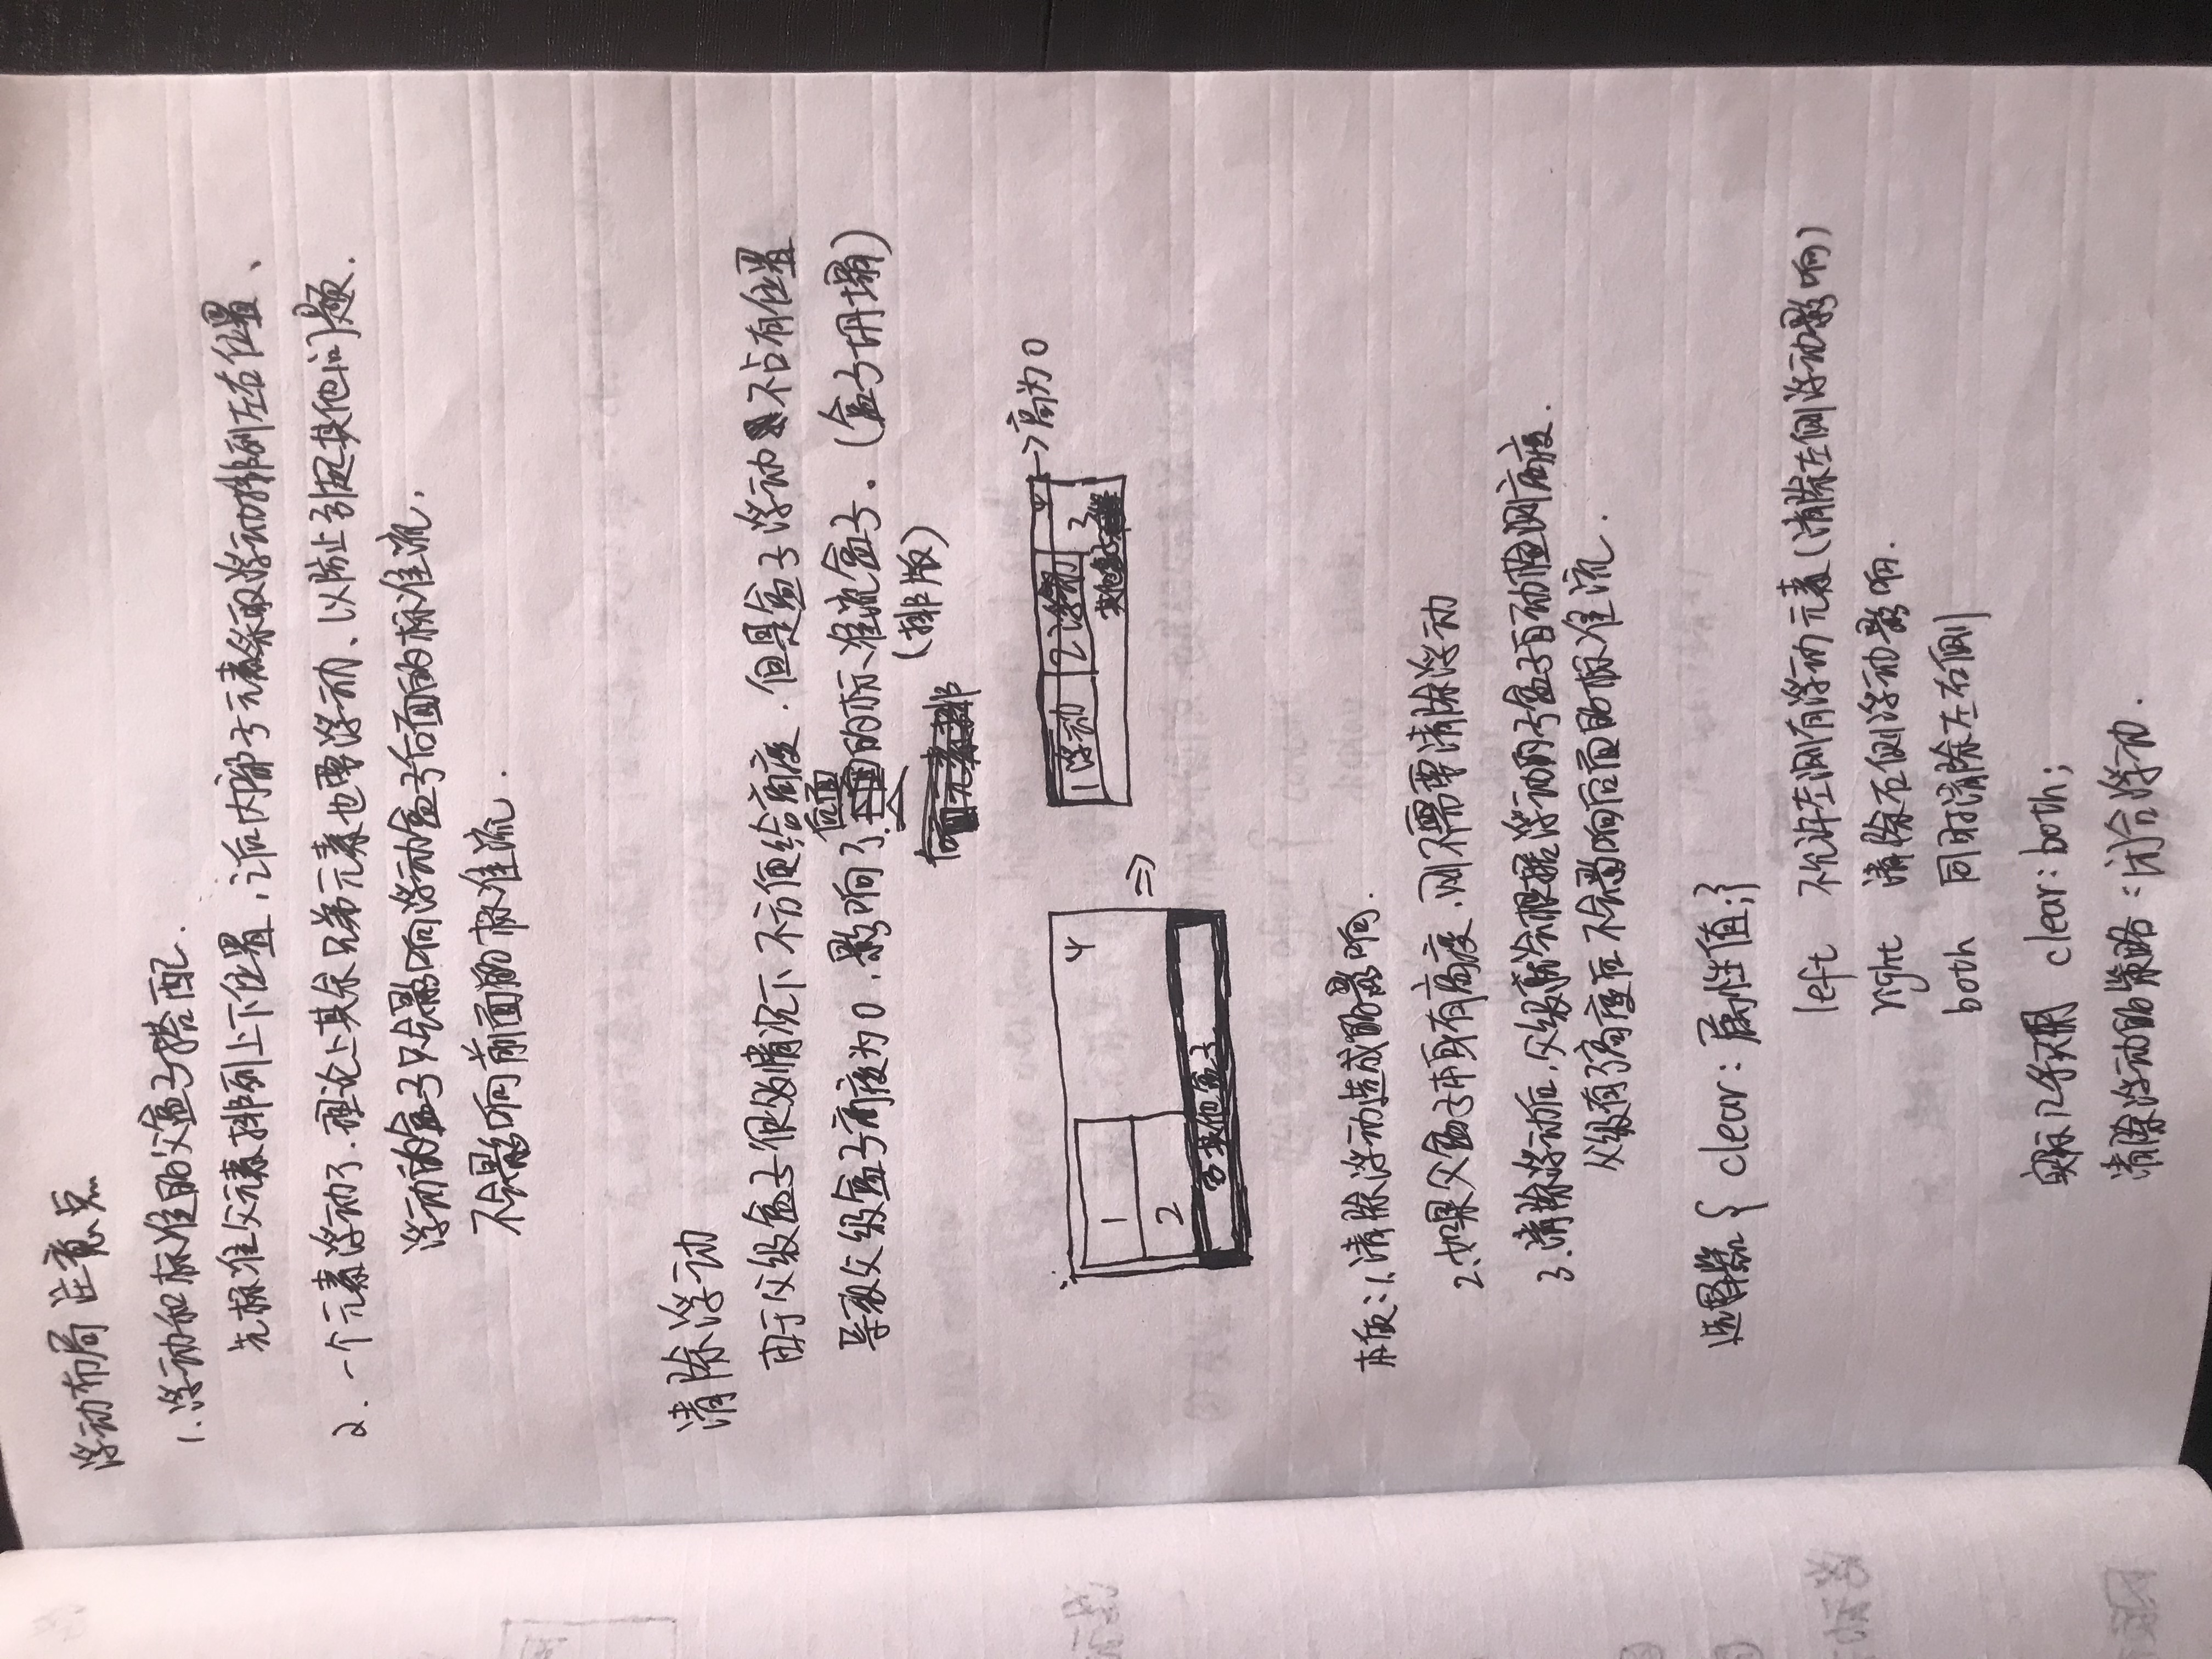 浮动布局注意点
1.浮动和标准的父盒子搭配.
先标准父元素排列上下位置,之后内部子元素采取浮动排列左右位置、
2.一个元素浮动了.理论上其余兄弟元素也要浮动、以防止引起其他问题.
浮动的盒子只会影响浮动盒子后面的标准流,
不会影响前面的标准流.
清除浮动
由于父级盒子很多情况下不方便给高度.但是盒子浮动不占有位置
后面
导致父级盒子高度为0,影响了的标准流盒子。(盒子坍塌)
(排版)
1
2
4
其他盒子
⇒
1浮动 2浮动 4
3
其他盒子
→高为0
本质:1.清除浮动造成的影响.
2.如果父盒子本身有高度,则不需要清除浮动
3.清除浮动后,父级就会根据浮动的子盒子自动检测高度.
父级有了高度后不会影响后面的标准流.
选择器{ clear:属性值;}
left 不允许左侧有浮动元素(清除左侧浮动影响)
right 清除右侧浮动影响.
both 同时清除左右侧
实际几乎只用 clear:both;
清除浮动的策略:闭合浮动.